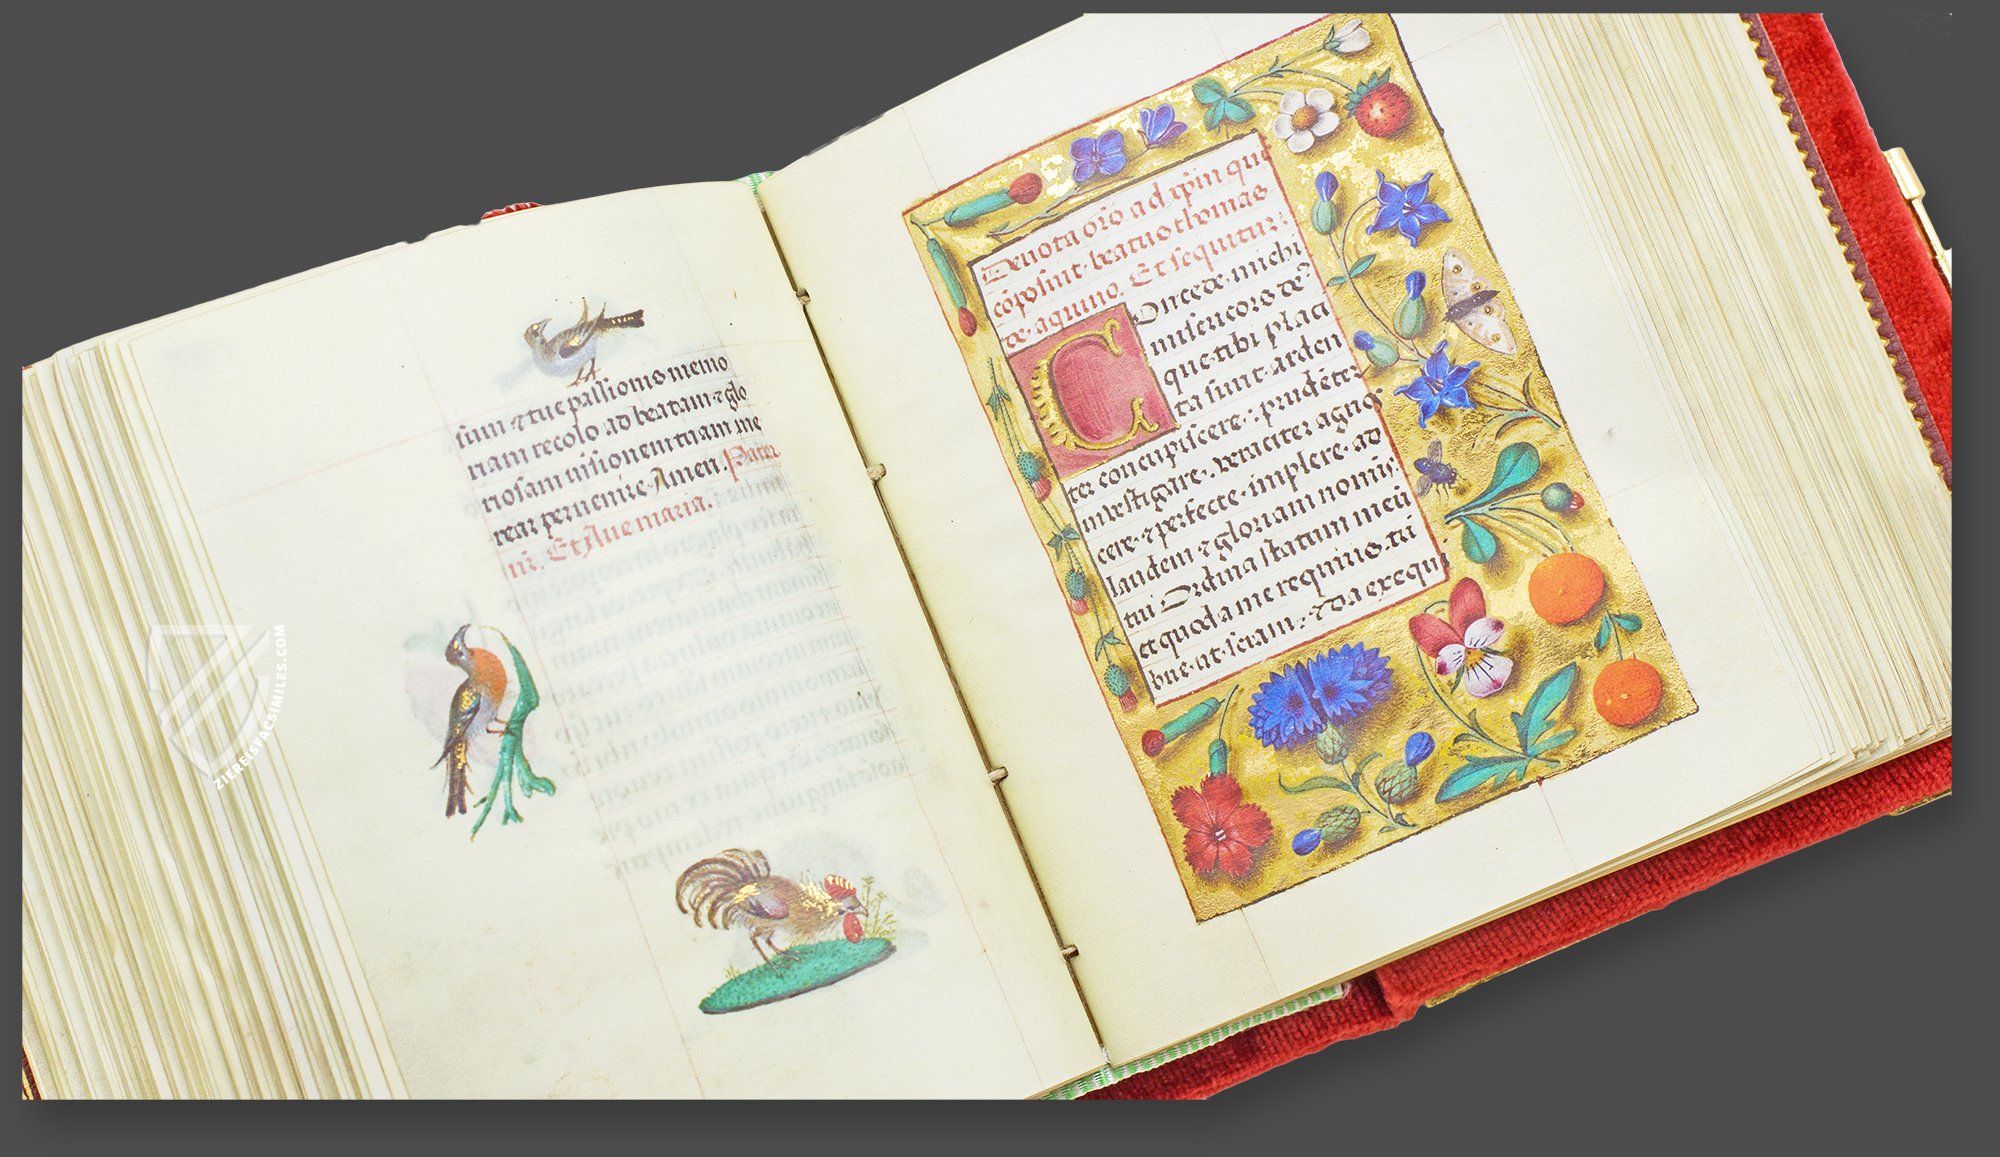 sum ⁊ tue passionis memo
riam recolo ad beatam ⁊ glo
riosam uisionem tuam me
rear peruenire Amen. Pater
nr̄. Et Aue maria.
Deuota orō ad xp̄m que
cōposuit beatus thomas
de aquino. Et sequitur.
Oncede michi
misericors de⁹
que tibi placi
ta sunt arden
ter concupiscere: prudēter
inuestigare. veraciter agnos
cere ⁊ perfecte implere ad
laudem ⁊ gloriam nominis
tui Ordina statum meū
et quod a me requiris tri
bue ut sciam: ⁊ da exequi
ZIEREISFACSIMILES.COM